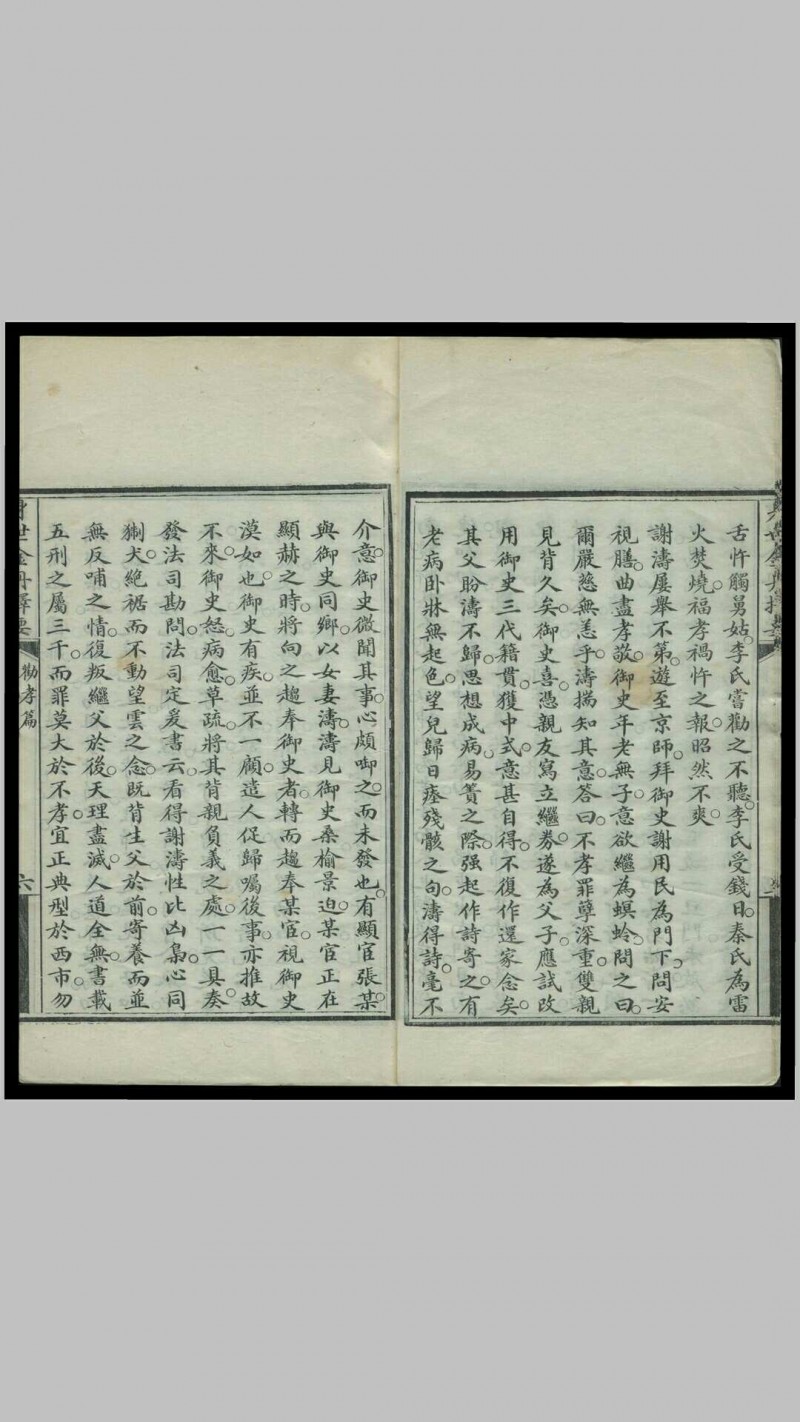 舌忤觸舅姑。李氏嘗勸之不聽。李氏受錢日。秦氏為雷
火焚燒。福孝禍忤之報。昭然不爽。
謝濤屢舉不第。遊至京師。拜御史謝用民為門下。問安
視膳。曲盡孝敬。御史年老無子。意欲繼為螟蛉。問之曰。
爾嚴慈無恙乎。濤揣知其意。答曰。不孝罪孽深重。雙親
見背久矣。御史喜。憑親友寫立繼券。遂為父子。應試改
用御史三代籍貫。獲中式。意甚自得。不復作還家念矣。
其父盼濤不歸。思想成病。易簀之際。强起作詩寄之。有
老病卧牀無起色。望兒歸日瘞殘骸之句。濤得詩。毫不
介意。御史微聞其事。心頗啣之。而未發也。有顯官張某。
與御史同鄉。以女妻濤。濤見御史桑榆景迫。某官正在
顯赫之時。將向之趨奉御史者。轉而趨奉某官。視御史
漠如也。御史有疾。並不一顧。遣人促歸囑後事。亦推故
不來。御史怒。病愈。草疏。將其背親負義之處。一一具奏。
發法司勘問。法司定爰書云。看得謝濤性比凶梟。心同
猘犬。絕裾而不動望雲之念。既背生父於前。寄養而並
無反哺之情。復叛繼父於後。天理盡滅。人道全無。書載
五刑之屬三千。而罪莫大於不孝。宜正典型於西市。勿
勸孝篇
六